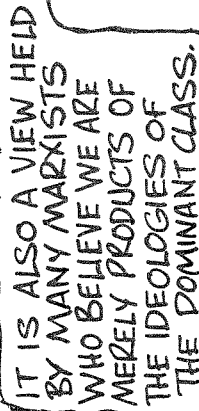 IT IS ALSO A VIEW HELD
BY MANY MARXISTS
WHO BELIEVE WE ARE
MERELY PRODUCTS OF
THE IDEOLOGIES OF
THE DOMINANT CLASS.